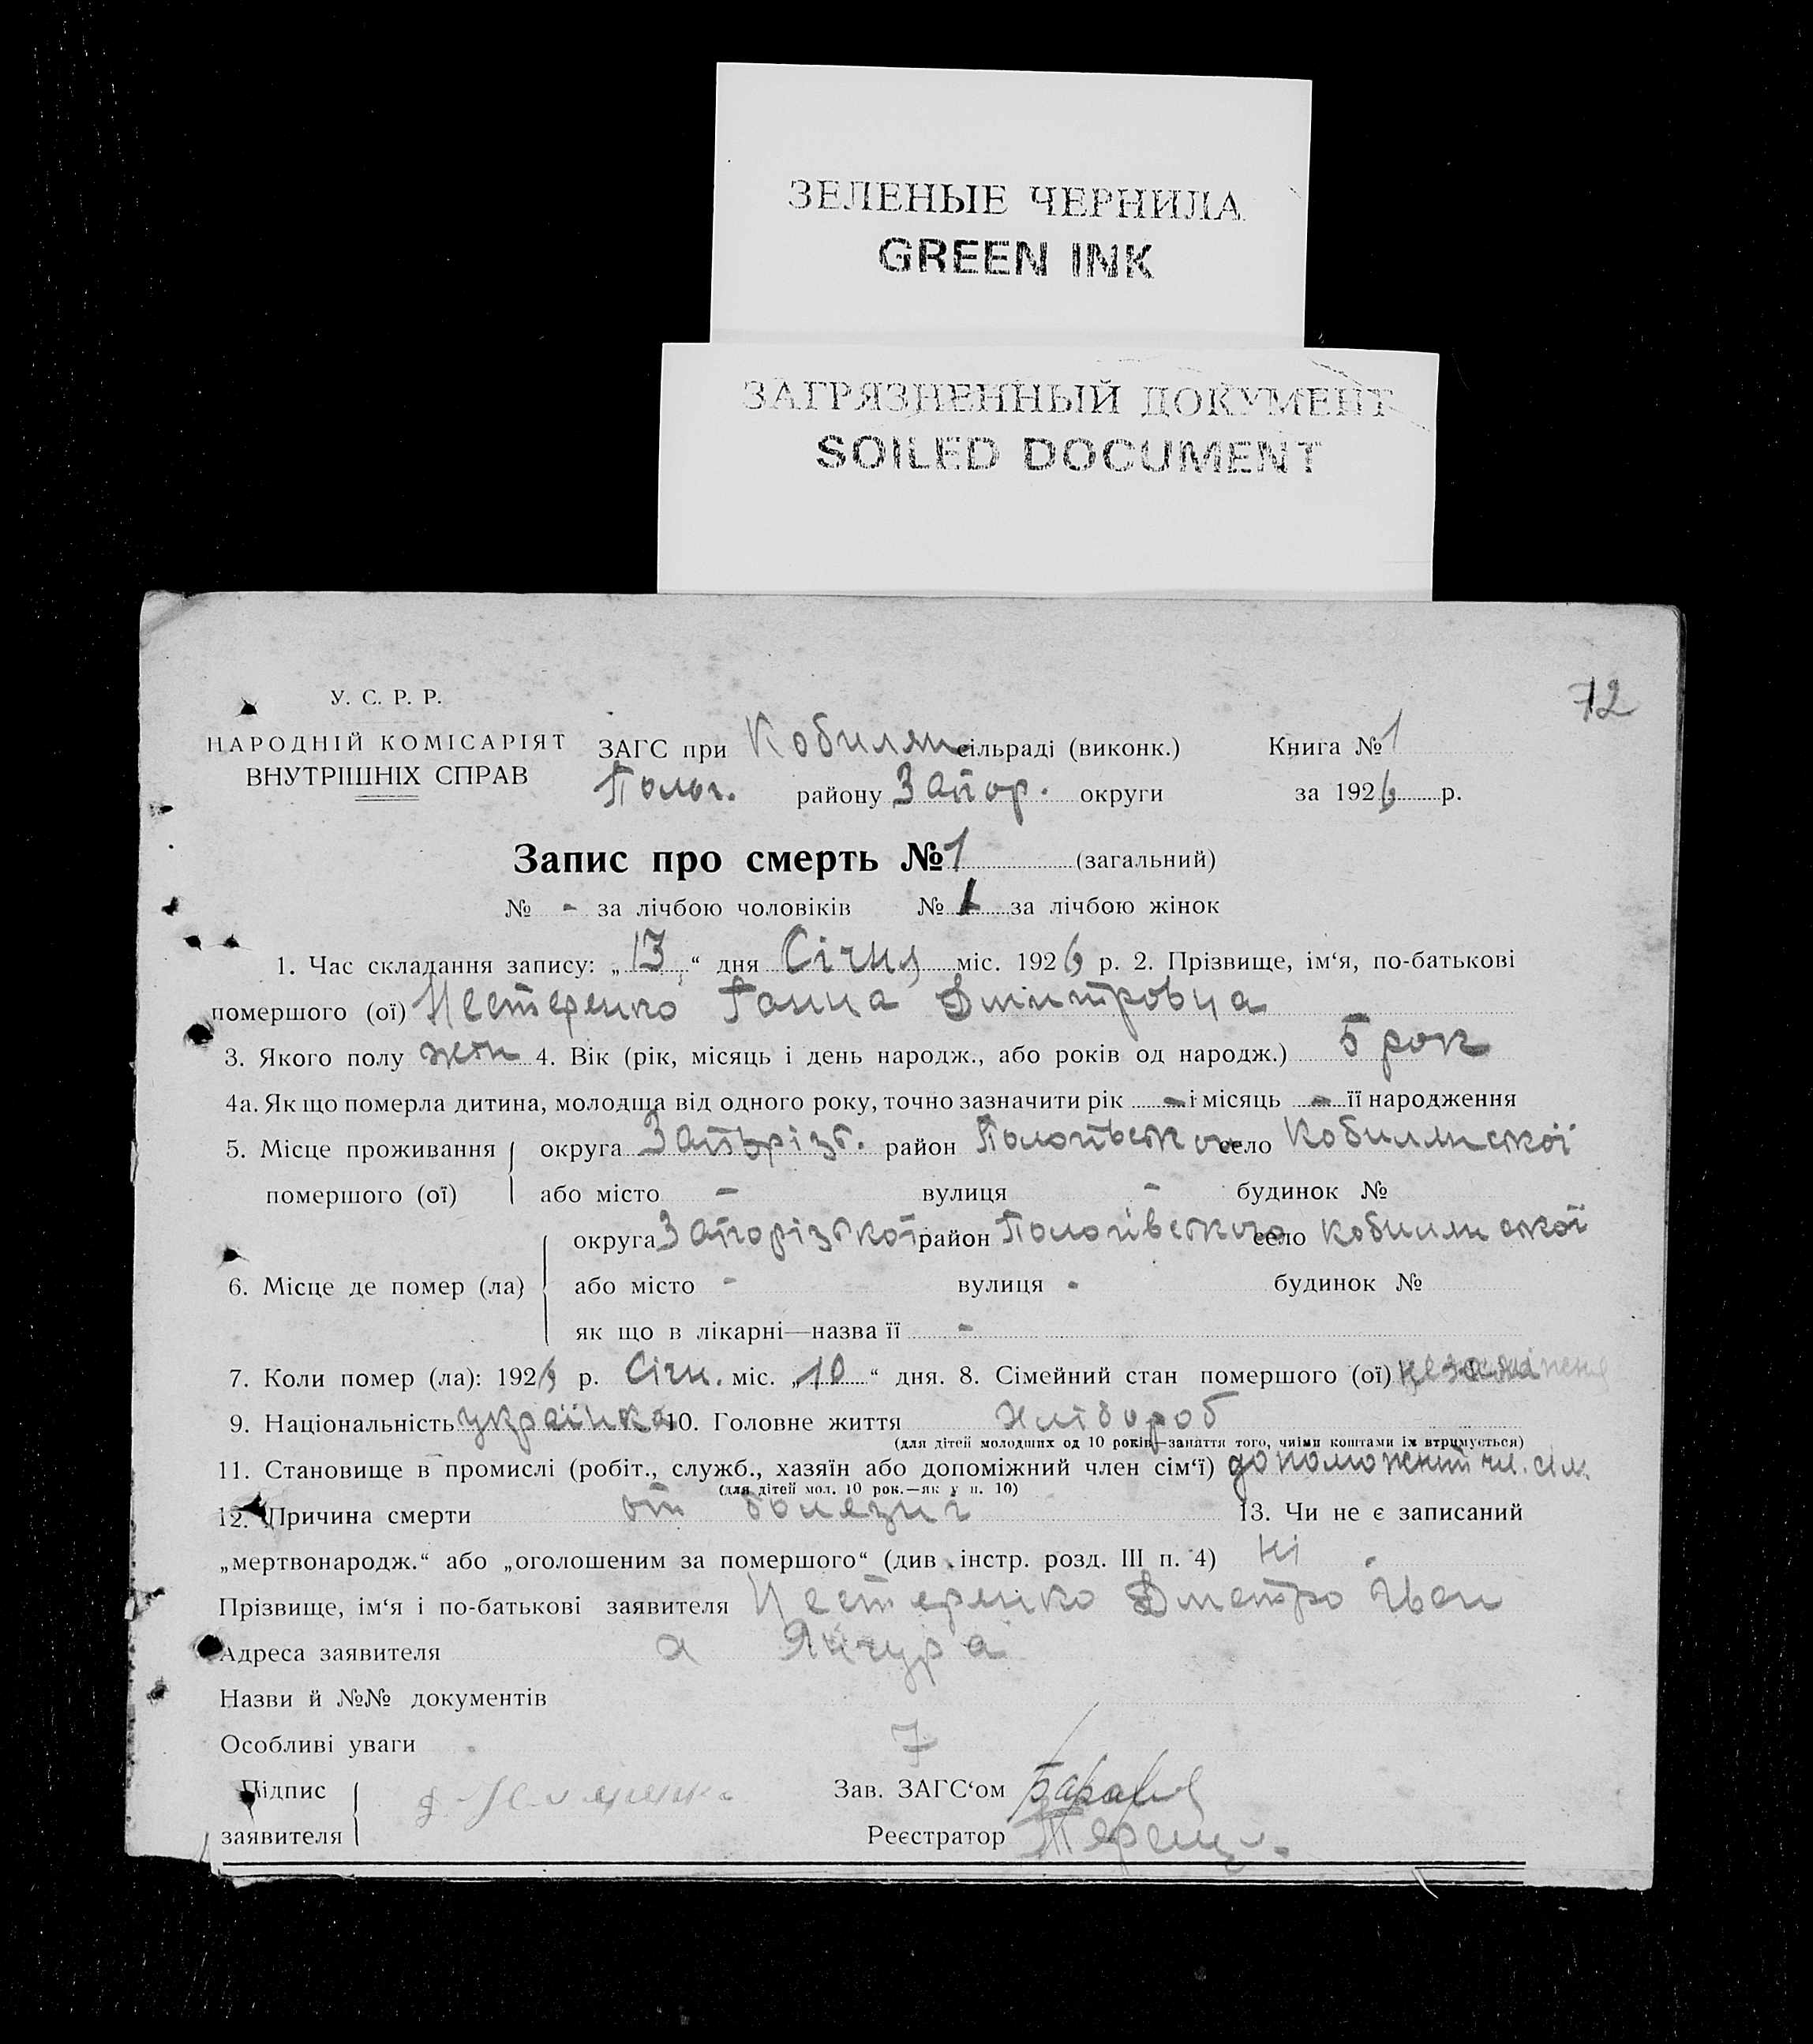 ЗЕЛЕНЫЕ ЧЕРНИЛА
GREEN INK
ЗАГРЯЗНЕННЫЙ ДОКУМЕНТ
SOILED DOCUMENT
72
У. С. Р. Р.
НАРОДНІЙ КОМІСАРІЯТ
ВНУТРІШНІХ СПРАВ
ЗАГС при Кобилян сільраді (виконк.) Книга № 1
Полог. району Запор. округи за 1926 р.
Запис про смерть № 1 (загальний)
№ - за лічбою чоловіків № 1 за лічбою жінок
1. Час складання запису: „13“ дня Січня міс. 1926 р. 2. Прізвище, ім‘я, по-батькові
помершого (ої) Нестеренко Ганна Дмитровна
3. Якого полу жін 4. Вік (рік, місяць і день народж., або років од народж.) 5 рок
4а. Як що померла дитина, молодша від одного року, точно зазначити рік - і місяць - її народження
5. Місце проживання округа Запорізь. район Пологівськ село Кобилянської
помершого (ої) або місто - вулиця - будинок №
округа Запорізької район Пологівського село Кобилянської
6. Місце де помер (ла) або місто - вулиця - будинок №
як що в лікарні—назва її -
7. Коли помер (ла): 1926 р. Січн. міс. „10“ дня. 8. Сімейний стан помершого (ої)
9. Національність українка 10. Головне життя хлібороб
(для дітей молодших од 10 років—заняття того, чиїми коштами їх втримується)
11. Становище в промислі (робіт., служб., хазяїн або допоміжний член сім‘ї) допоможний чл. сім.
(для дітей мол. 10 рок.—як у п. 10)
12. Причина смерти от болезні 13. Чи не є записаний
„мертвонародж.“ або „оголошеним за помершого“ (див. інстр. розд. III п. 4) ні
Прізвище, ім‘я і по-батькові заявителя Нестеренко Дметро Іван
Адреса заявителя Янчура
Назви й №№ документів
Особливі уваги
7
Підпис
заявителя
Зав. ЗАГС‘ом
Реєстратор